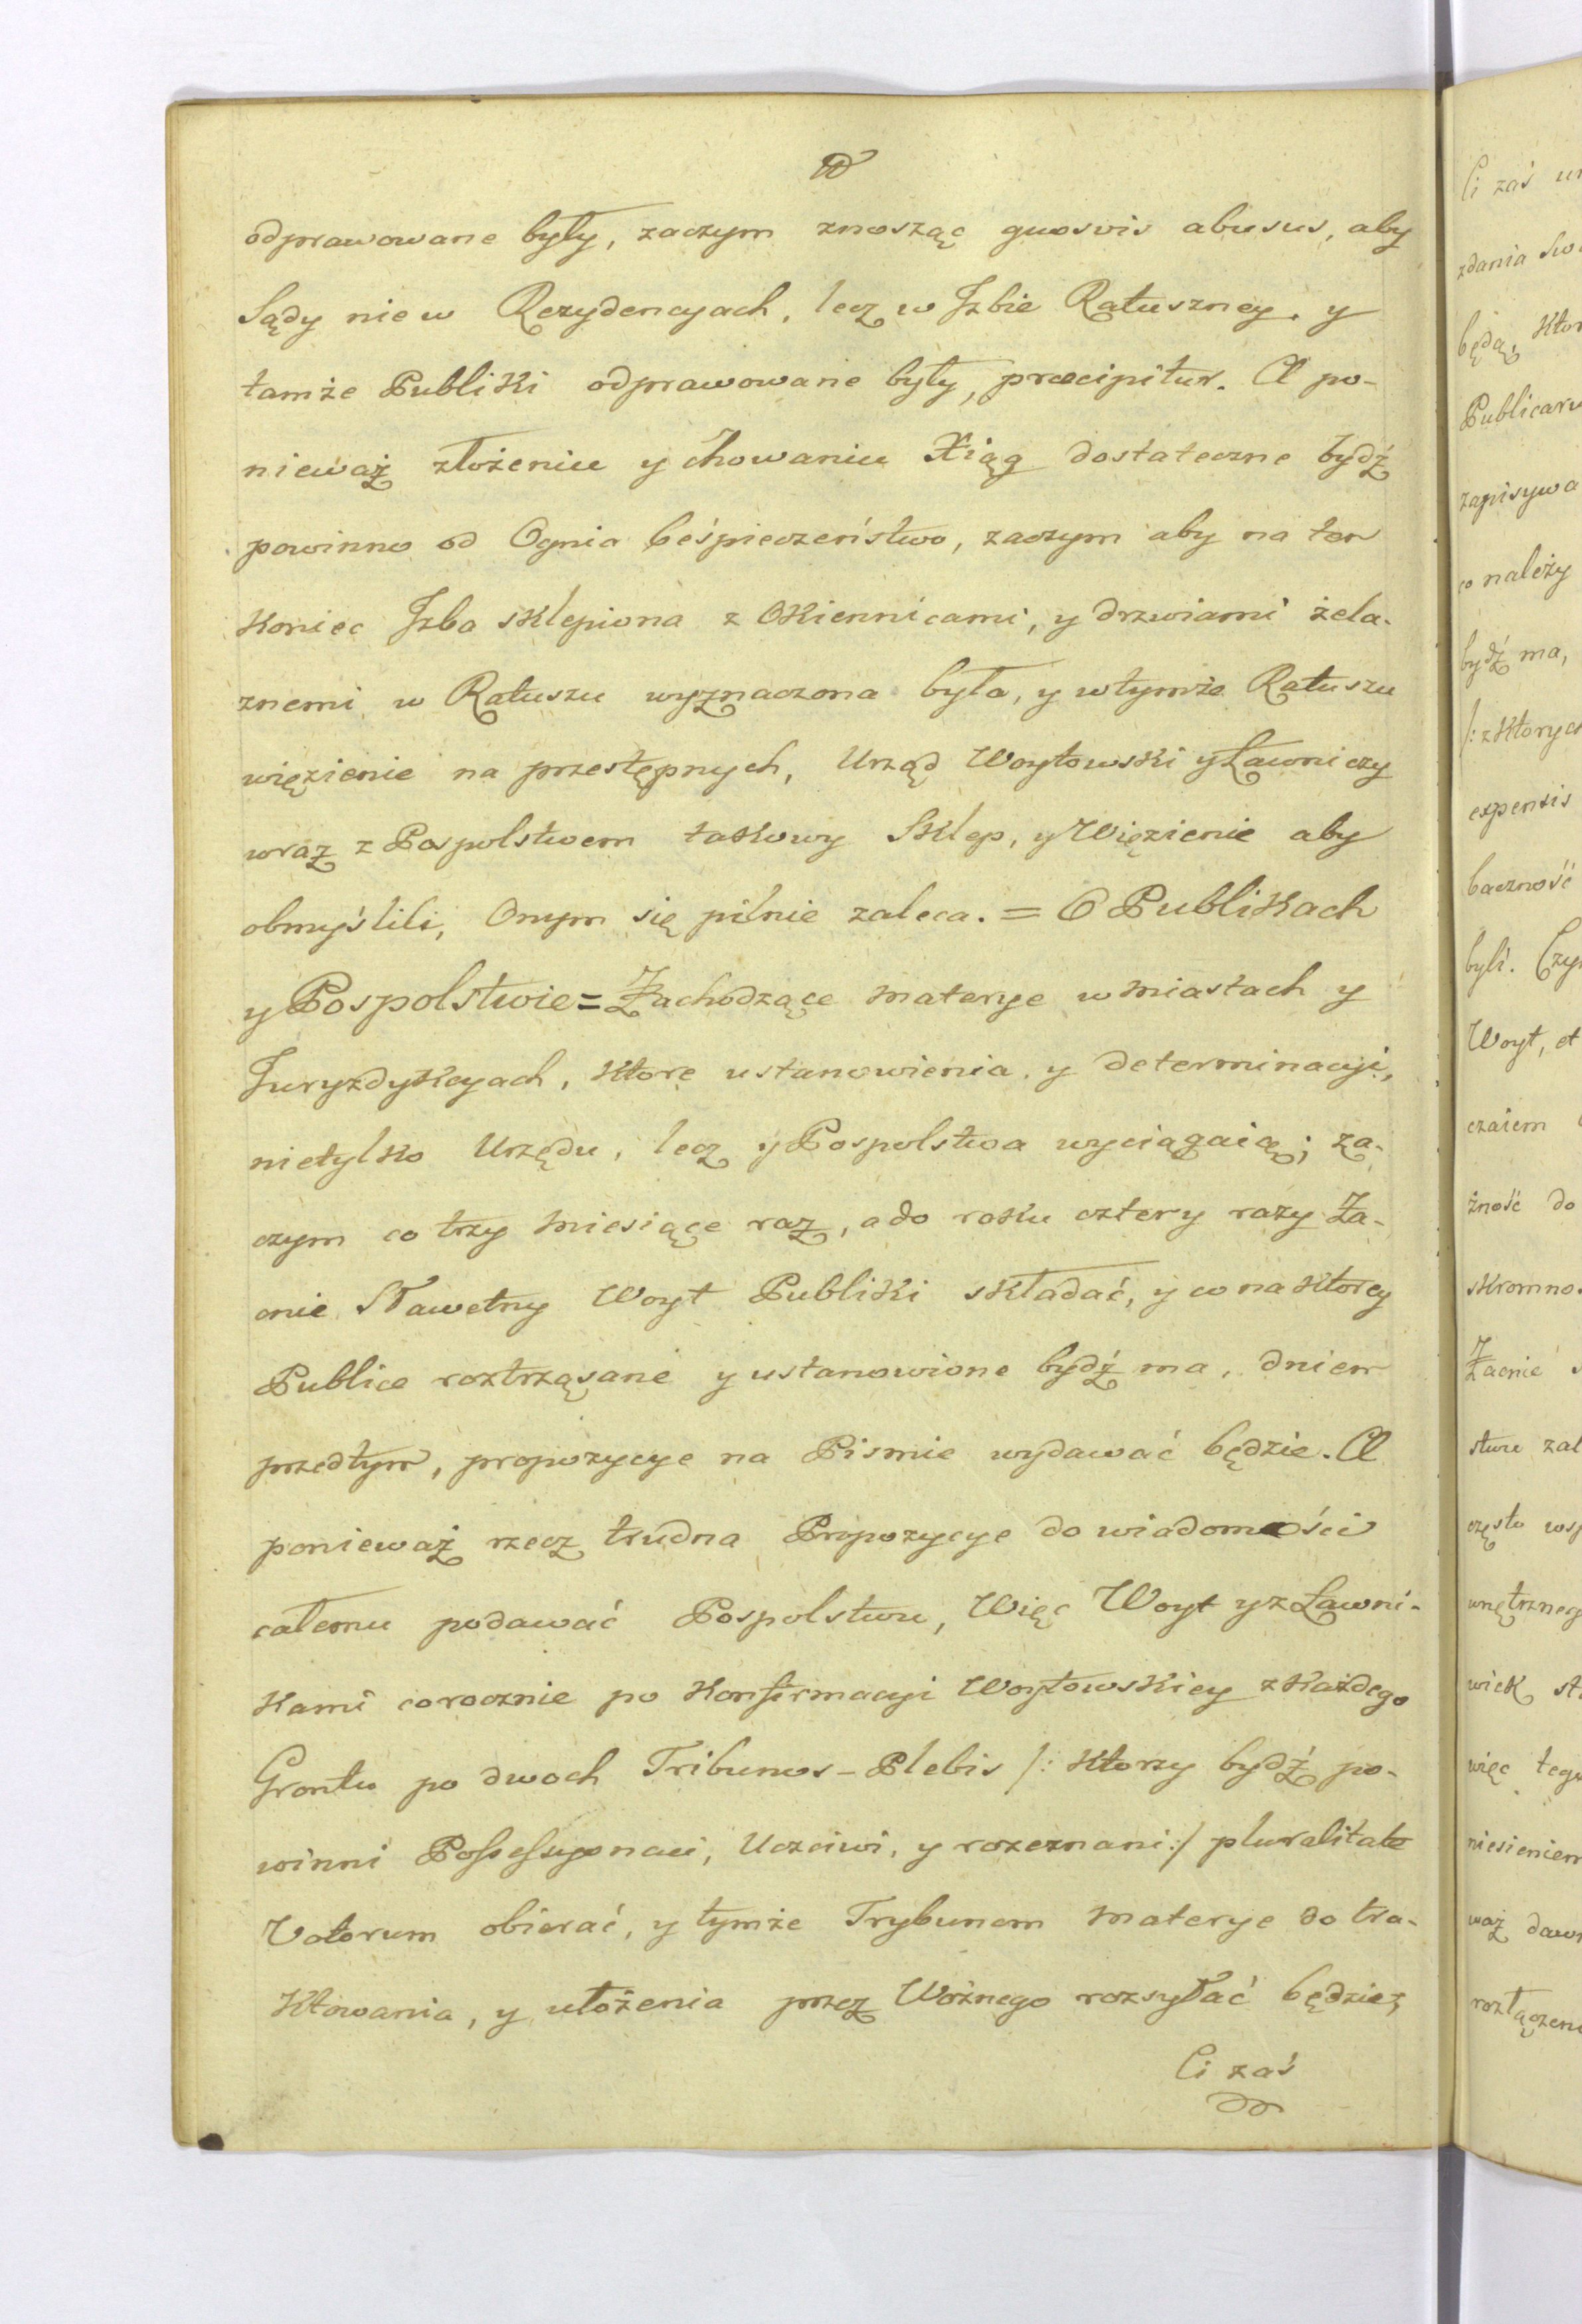 odprawowane były, zaczym znosząc quosvis abusus, aby
Sądy nie w Rezydencyach, lecz w Jzbie Ratuszney, y
tamże Publiki odprawowane były, præcipitur. A po-
nieważ złożeniu y chowaniu Xiąg dostateczne bydź
powinno od Ognia beśpieczeństwo, zaczym aby na ten
koniec Jzba sklepiona z Okiennicami, y drzwiami żela-
znemi w Ratuszu wyznaczona była, y wtymże Ratuszu
więzienie na przestępnych, Urząd Woytowski y Ławniczy
wraz z Pospolstwem takowy Sklep, y Więzienie aby
obmyślili, Onym się pilnie zaleca. = O Publikach
y Pospolstwie = Zachodzące materye w miastach y
Juryzdykcyach, ktore ustanowienia, y determinacyi,
nietylko Urzędu, lecz y Pospolstwa wyciągaią; za-
czym co trzy miesiące raz, a do roku cztery razy Za-
cnie Sławetny Woyt Publiki składać, y co na ktorey
Publice roztrząsane y ustanowione bydź ma, dniem
przedtym, propozycye na Pismie wydawać będzie. A
ponieważ rzecz trudna Propozycye do wiadomości
całemu podawać Pospolstwu, Więc Woyt y z Ławni-
kami corocznie po Konfirmacyi Woytowskiey z każdego
Grontu po dwoch Tribunos-Plebis /: ktorzy bydź po-
winni Possessyonaci, Uczciwi, y rozeznani :/ pluralitate
Votorum obierać, y tymże Trybunom materye do tra-
ktowania, y ułożenia przez Woźnego rozsyłać będzie,
Ci zaś
Ci zaś
zdania
będą,
zapisywa
co należy
bydź ma,
expensis
baczność
byli.
Woyt, et
czaiem
żność do
skromno
Zacnie
często
więc
niesieniem